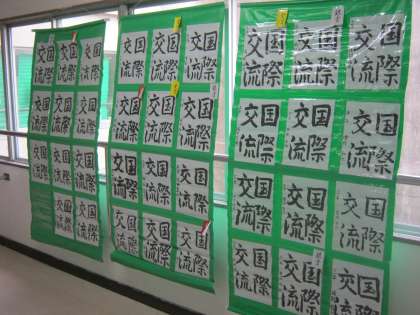 国際
交流
国際
交流
国際
交流
国際
交流
国際
交流
国際
交流
国際
交流
国際
交流
国際
交流
国際
交流
国際
交流
国際
交流
国際
交流
国際
交流
国際
交流
国際
交流
国際
交流
国際
交流
国際
交流
国際
交流
国際
交流
国際
交流
国際
交流
国際
交流
国際
交流
国際
交流
国際
交流
国際
交流
国際
交流
国際
交流
国際
交流
国際
交流
国際
交流
国際
交流
国際
交流